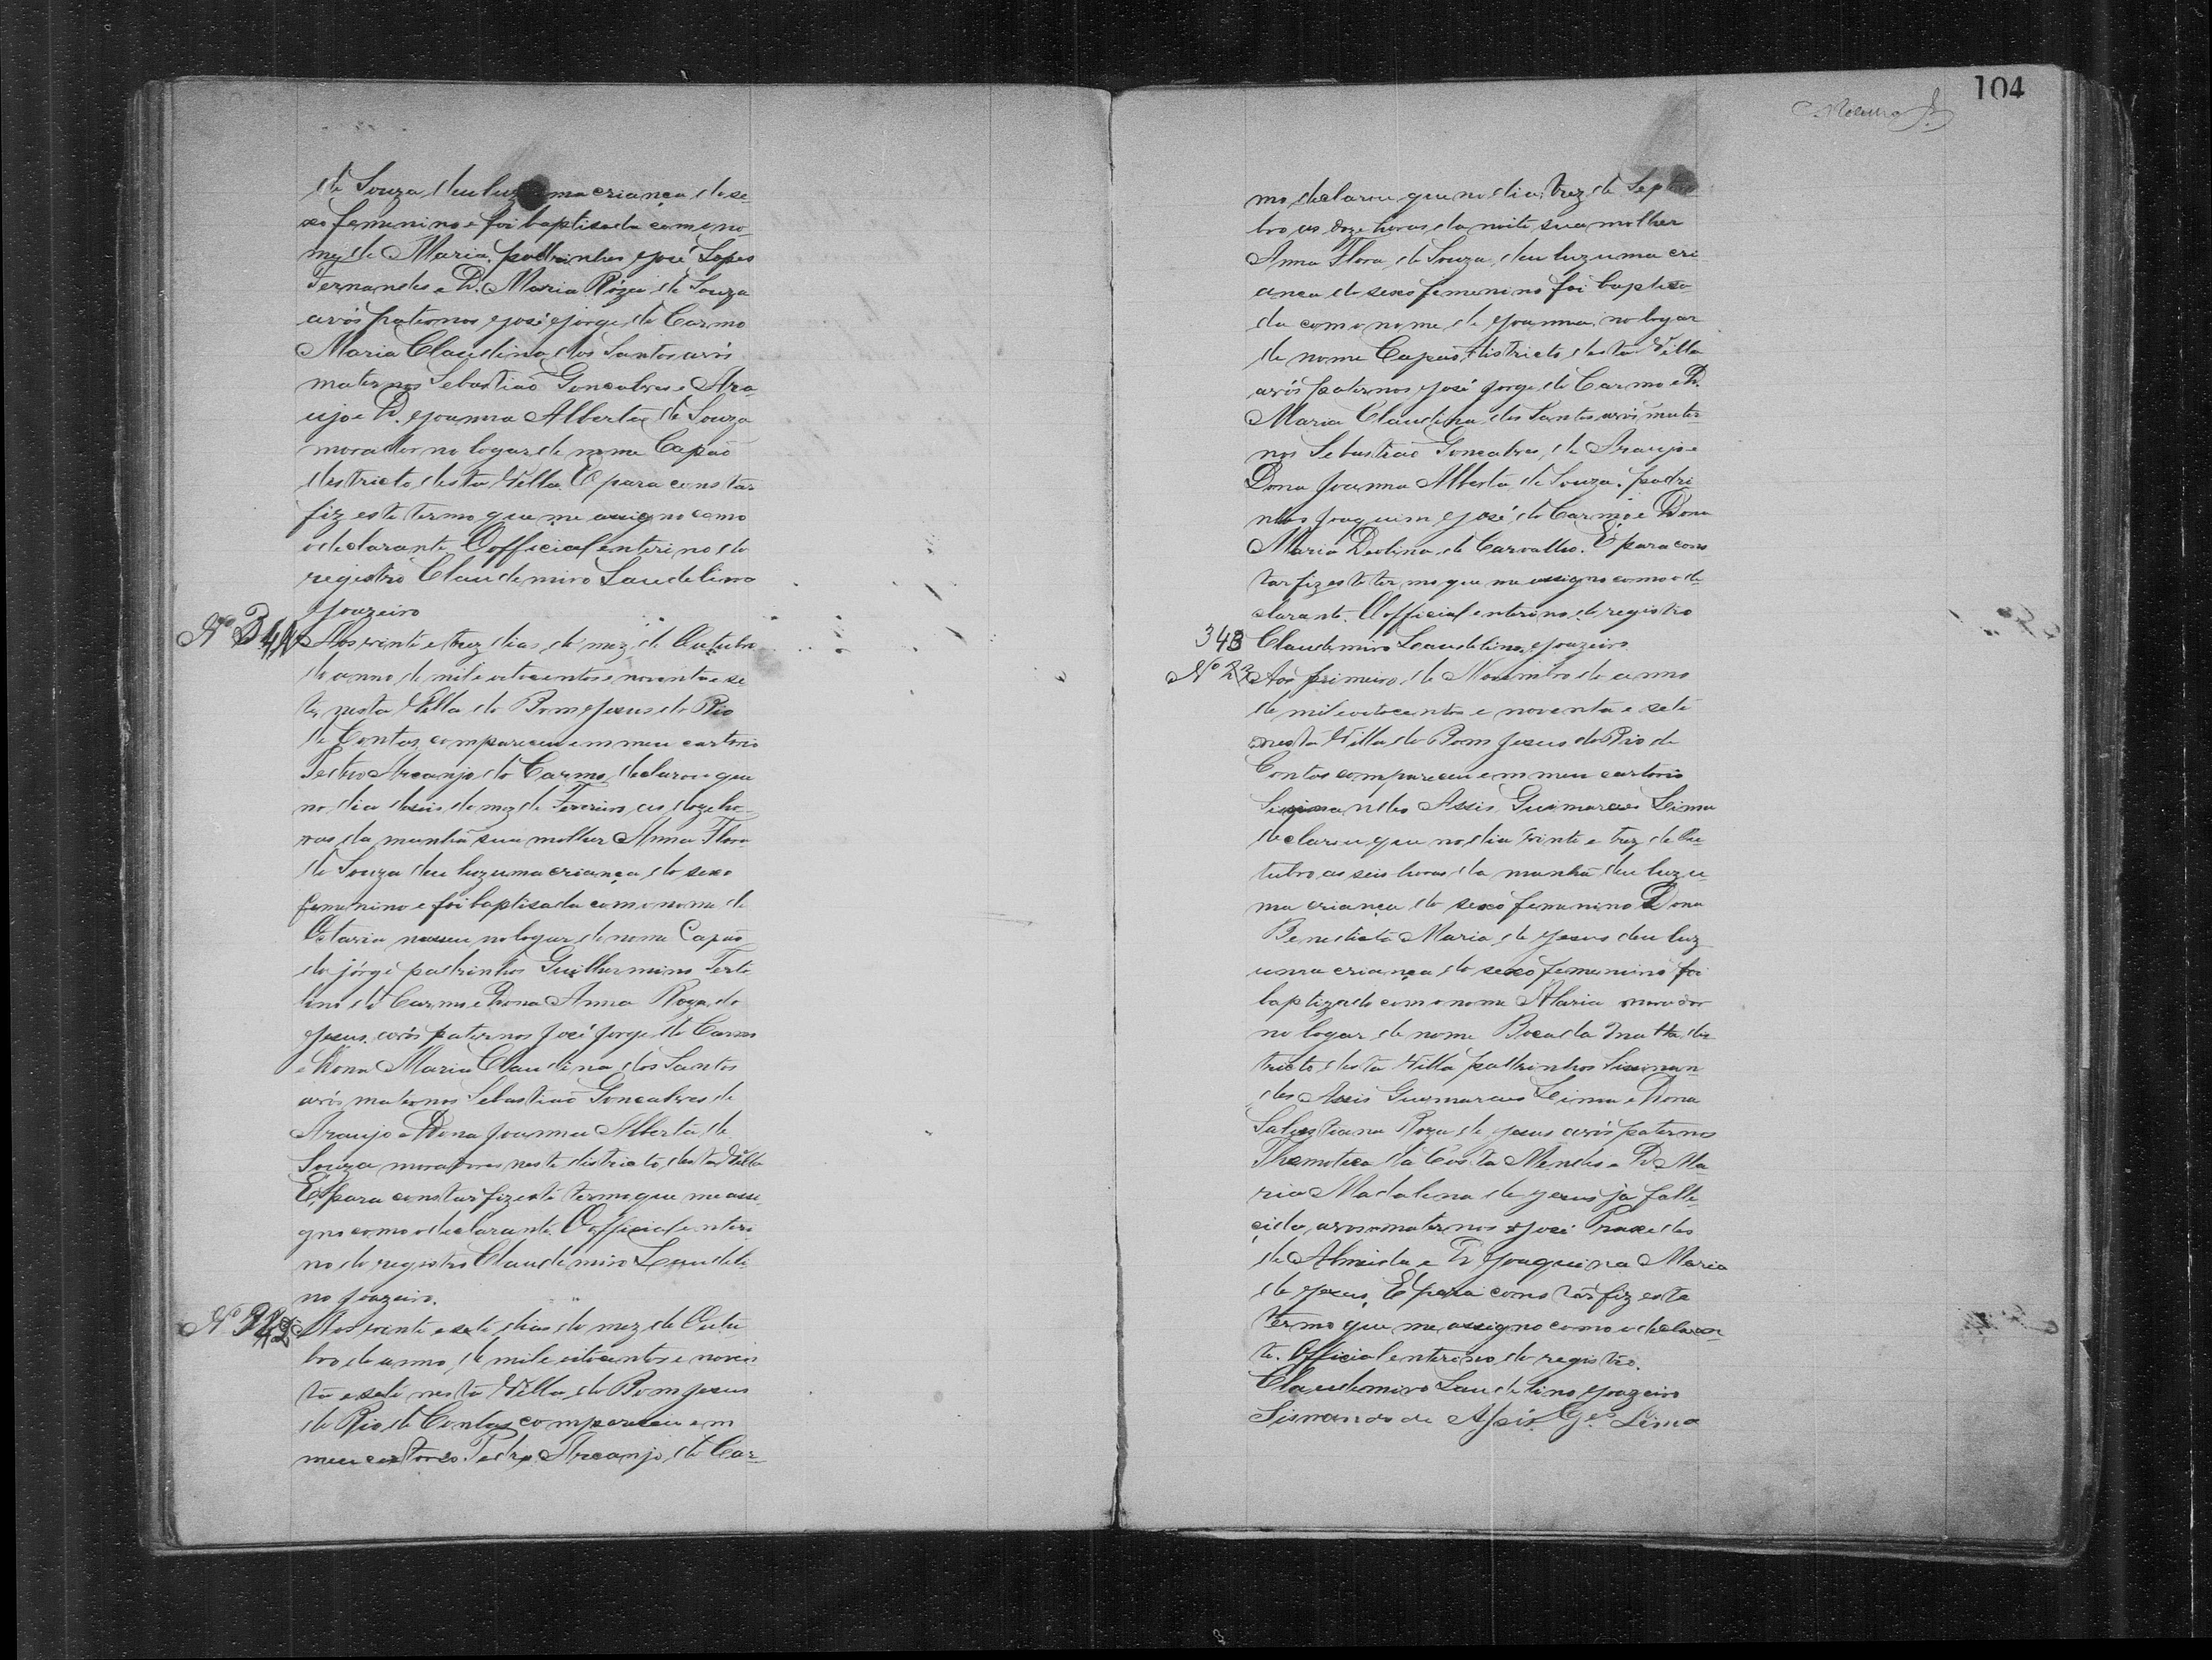 de Souza deu luz uma criança do se-
xo femenino e foi baptisada com o no-
me de Maria, padrinhos José Lopes
Fernandes e D. Maria Róza de Souza
avós paternos José Jorge do Carmo
Maria Claudina dos Santos avós
maternos Sebastiaõ Goncalves e Ara-
ujo e D. Joanna Alberta de Souza
morador no logar de nome Capaõ
districto desta Villa. E para constar
fiz este termo que me assigno como
o declarante. O official enterino do
registro Claudemiro Laudelino
Joazeiro
Nº 341 Aos vinte e trez dias do mez de Outubro
do anno de mil e oitocentos e noventa e se-
te, nesta Villa do Bom Jesus do Rio
de Contas, compareceu em meu cartorio
Pedro Arcanjo do Carmo, declarou que
no dia dois do mez de Fevreiro as doze ho-
ras da manhã sua molher Anna Flora
de Souza deu luz uma criança do sexo
femenino e foi baptisada com o nome de
Otaria nasceu no logar de nome Capaõ
do jórge padrinhos Guilhermino Terto
lino do Carmo e Dona Anna Roza de
Jesus, avós paternos José Jorge do Carmo
e Dona Maria Claudina dos Santos
avós maternos Sebastiaõ Goncalves de
Araujo e Dona Joanna Alberta de
Souza moradores neste districto desta Villa
E para constar fiz este termo que me assi-
gno como o declarante. O official enteri-
no do registro Claudemiro Laudeli-
no Joazeiro.
Nº 342 Aos vinte e sete dias do mez de Outu
bro do anno de mil e oitocentos e noven
ta e sete nesta Villa do Bom Jesus
do Rio de Contas compareceu em
meu cartorio Pedro Arcanjo do Car-
104
mo, declarou que no dia trez de Septem
bro as doze horas da noite sua molher
Anna Flora de Souza deu luz uma cri
anca do sexo femenino foi baptisa-
da com o nome de Joanna, no logar
de nome Capaõ districto desta Villa
avós paternos José Jorge do Carmo e D.
Maria Claudina dos Santos avós mater-
nos Sebastiaõ Goncalves de Araujo e
Dona Joanna Alberta de Souza. padri
nhos Joaquim José do Carmo e Dona
Maria Deolina de Carvalho. E para cons
tar fiz este termo que me assigno como o de-
clarante. O official enterino do registro
343 Claudemiro Laudelino Joazeiro
Nº Aos primeiro de Novembro do anno
de mil e oitocentos e noventa e sete
nesta Villa do Bom Jesus do Rio de
Contas compareceu em meu cartorio
Assis Guimarães Lima
declarou que no dia vinte e trez de Ou-
tubro as seis horas da manhã deu luz u-
ma criança do sexo femenino Dona
Benedicta Maria de Jesus deu luz
uma criança do sexo femenino foi
baptizado com o nome Maria morador
no logar de nome Boca da Matta dis-
tricto desta Villa padrinhos Sisinan-
do Assis Guimaraes Lima e Dona
Salustiana Roza de Jesus avós paternos
Thimoteo da Costa Mendes e D. Ma
ria Madalena de Jesus ja falle-
cida, avos maternos José Praxedes
de Almeida e D Joaquina Maria
de Jesus. E para constar fiz este
termo que me assigno como o declaran-
te. Official enterino do registro.
Claudemiro Laudelino Joazeiro
Sisnando de Assis G.es Lima